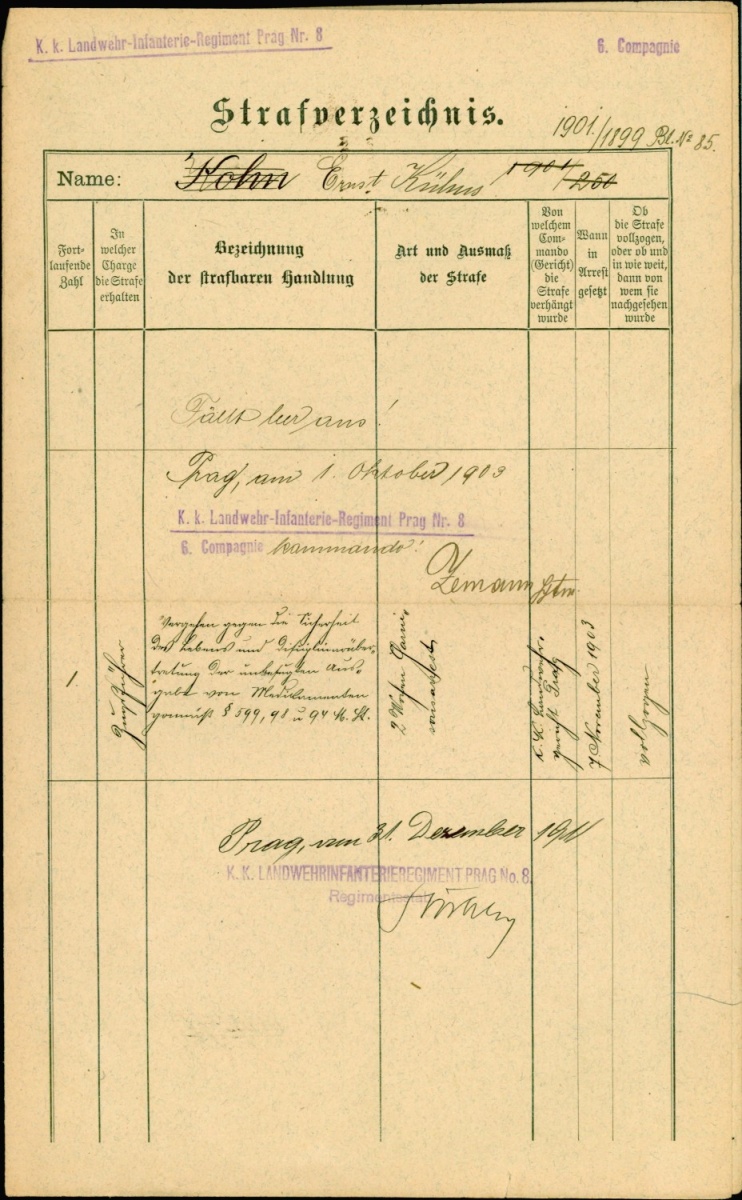 K. k. Landwehr-Infanterie-Regiment Prag Nr. 8
6. Compagnie
Strafverzeichnis.
1901/1899 Bl. № 85.
Name: Kohn Ernst Kühns 1901/250
Fort-
laufende
Zahl
In
welcher
Charge
die Strafe
erhalten
Bezeichnung
der strafbaren Handlung
Art und Ausmaß
der Strafe
Von
welchem
Com-
mando
(Gericht)
die
Strafe
verhängt
wurde
Wann
in
Arrest
gesetzt
Ob
die Strafe
vollzogen,
oder ob und
in wie weit,
dann von
wem sie
nachgesehen
wurde
Fällt leer aus!
Prag, am 1. Oktober 1903
K. k. Landwehr-Infanterie-Regiment Prag Nr. 8
6. Compagnie kommando!
Zemann
1
Zugsführer
Vergehen gegen die Sicherheit
des Lebens und Disziplinarüber-
tretung der unbefugten Aus-
gabe von Medikamenten
gemäß § 399, 98 u 94 M. St.
2 Wochen Garni-
sonsarrest
k. k. Landwehr-
gericht Prag
7 November 1903
vollzogen
Prag, am 31. Dezember 1911
K. K. LANDWEHRINFANTERIEREGIMENT PRAG No. 8.